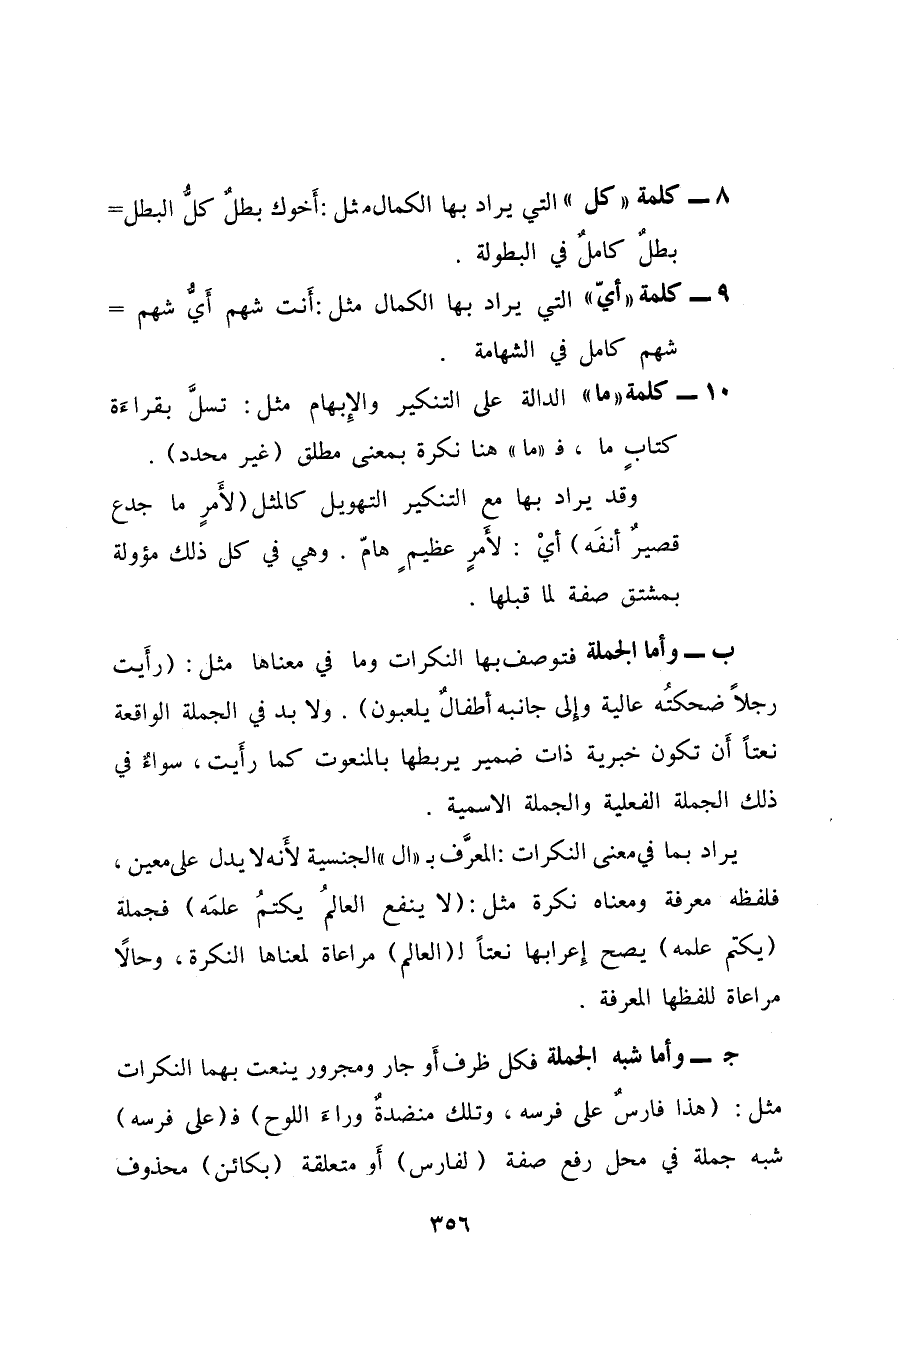 ٨ — كلمة «كل» التي يراد بها الكمال مثل : أَخوك بطلٌ كلُّ البطل =
بطلٌ كاملٌ في البطولة .
٩ — كلمة «أيّ» التي يراد بها الكمال مثل : أَنت شهم أَيُّ شهم =
شهم كامل في الشهامة .
١٠ — كلمة «ما» الدالة على التنكير والإِبهام مثل : تسلَّ بقراءَة
كتابٍ ما ، فـ «ما» هنا نكرة بمعنى مطلق (غير محدد) .
وقد يراد بها مع التنكير التهويل كالمثل (لأَمرٍ ما جدع
قصيرٌ أنفَه) أيْ : لأَمرٍ عظيمٍ هامّ . وهي في كل ذلك مؤولة
بمشتق صفة لما قبلها .
ب — وأما الجملة فتوصف بها النكرات وما في معناها مثل : (رأَيت
رجلاً ضحكتُه عالية وإلى جانبه أطفالٌ يلعبون) . ولا بد في الجملة الواقعة
نعتاً أَن تكون خبرية ذات ضمير يربطها بالمنعوت كما رأَيت ، سواءٌ في
ذلك الجملة الفعلية والجملة الاسمية .
يراد بما في معنى النكرات : المعرَّف بـ «ال» الجنسية لأَنه لا يدل على معين ،
فلفظه معرفة ومعناه نكرة مثل : (لا ينفع العالمُ يكتمُ علمَه) فجملة
(يكتم علمه) يصح إعرابها نعتاً لـ(العالم) مراعاة لمعناها النكرة ، وحالًا
مراعاة للفظها المعرفة .
جـ — وأما شبه الجملة فكل ظرف أَو جار ومجرور ينعت بهما النكرات
مثل : (هذا فارسٌ على فرسه ، وتلك منضدةٌ وراءَ اللوح) فـ(على فرسه)
شبه جملة في محل رفع صفة (لفارس) أَو متعلقة (بكائن) محذوف
٣٥٦